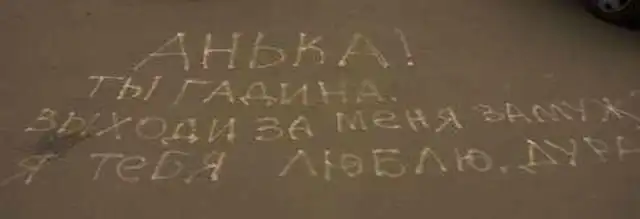 АНЬКА!
ТЫ ГАДИНА.
ВЫХОДИ ЗА МЕНЯ ЗАМУЖ
Я ТЕБЯ ЛЮБЛЮ, ДУРА